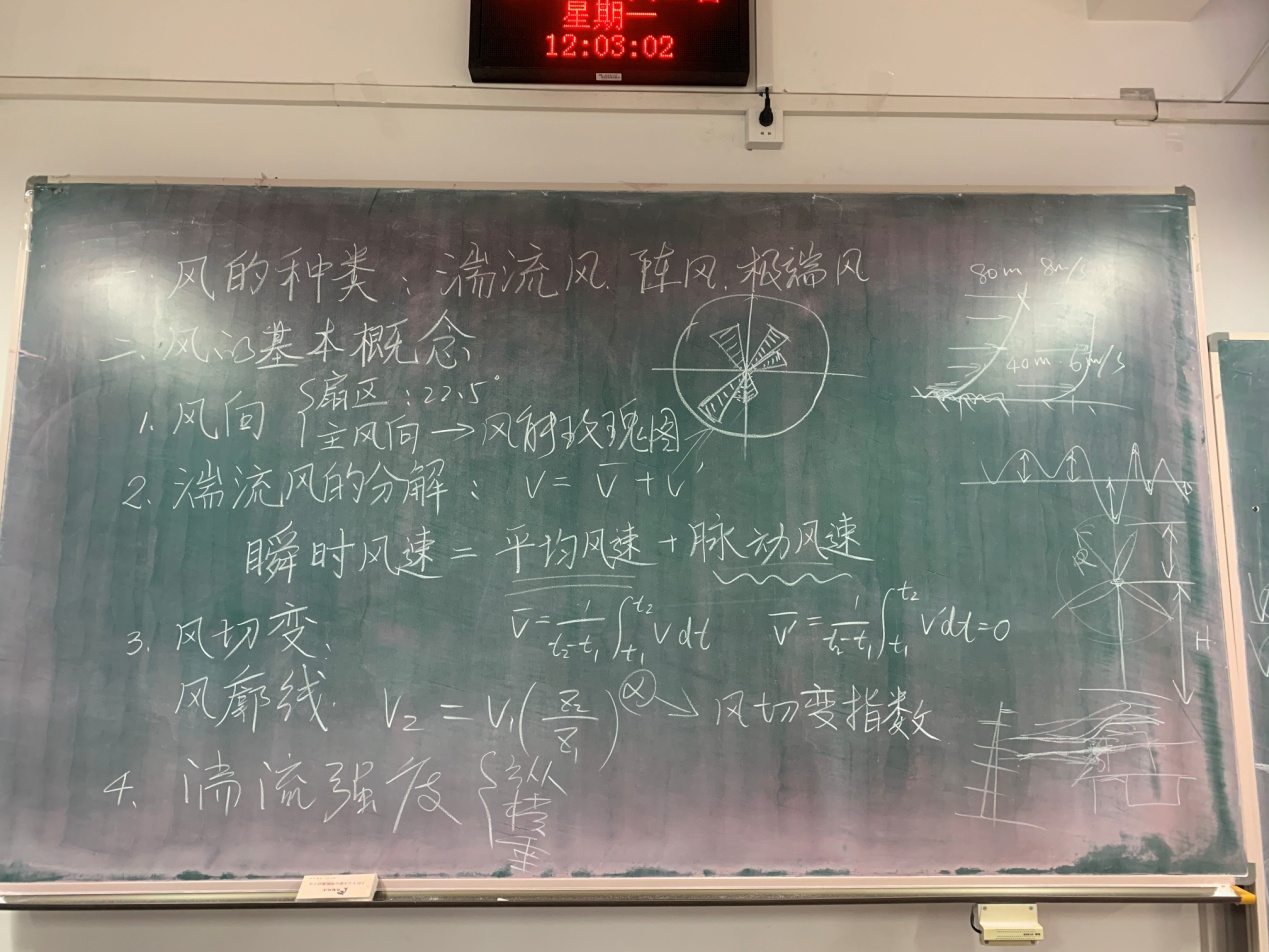 星期一
12:03:02
一、风的种类：湍流风、阵风、极端风
二、风的基本概念
1. 风向 { 扇区：22.5°
主风向 → 风射玫瑰图
2. 湍流风的分解：V = V̄ + V′
瞬时风速 = 平均风速 + 脉动风速
V̄ = 1/(t₂-t₁) ∫_{t₁}^{t₂} V dt
V̄ = 1/(t₂-t₁) ∫_{t₁}^{t₂} V′dt = 0
3. 风切变、
风廓线
V₂ = V₁(Z₂/Z₁)^α → 风切变指数
4. 湍流强度 { 纵
横
垂
80m 8m/s
40m 6m/s
R
H